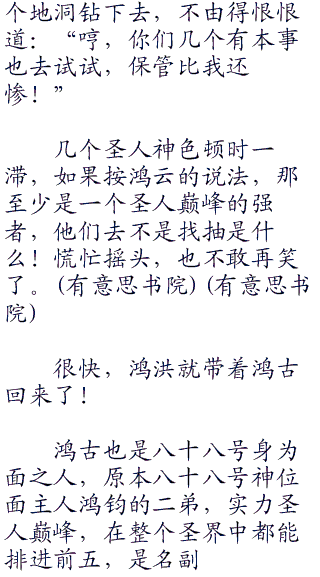 个地洞钻下去，不由得恨恨
道：“哼，你们几个有本事
也去试试，保管比我还
惨！”
几个圣人神色顿时一
滞，如果按鸿云的说法，那
至少是一个圣人巅峰的强
者，他们去不是找抽是什
么！慌忙摇头，也不敢再笑
了。(有意思书院)(有意思书
院)
很快，鸿洪就带着鸿古
回来了！
鸿古也是八十八号身为
面之人，原本八十八号神位
面主人鸿钧的二弟，实力圣
人巅峰，在整个圣界中都能
排进前五，是名副